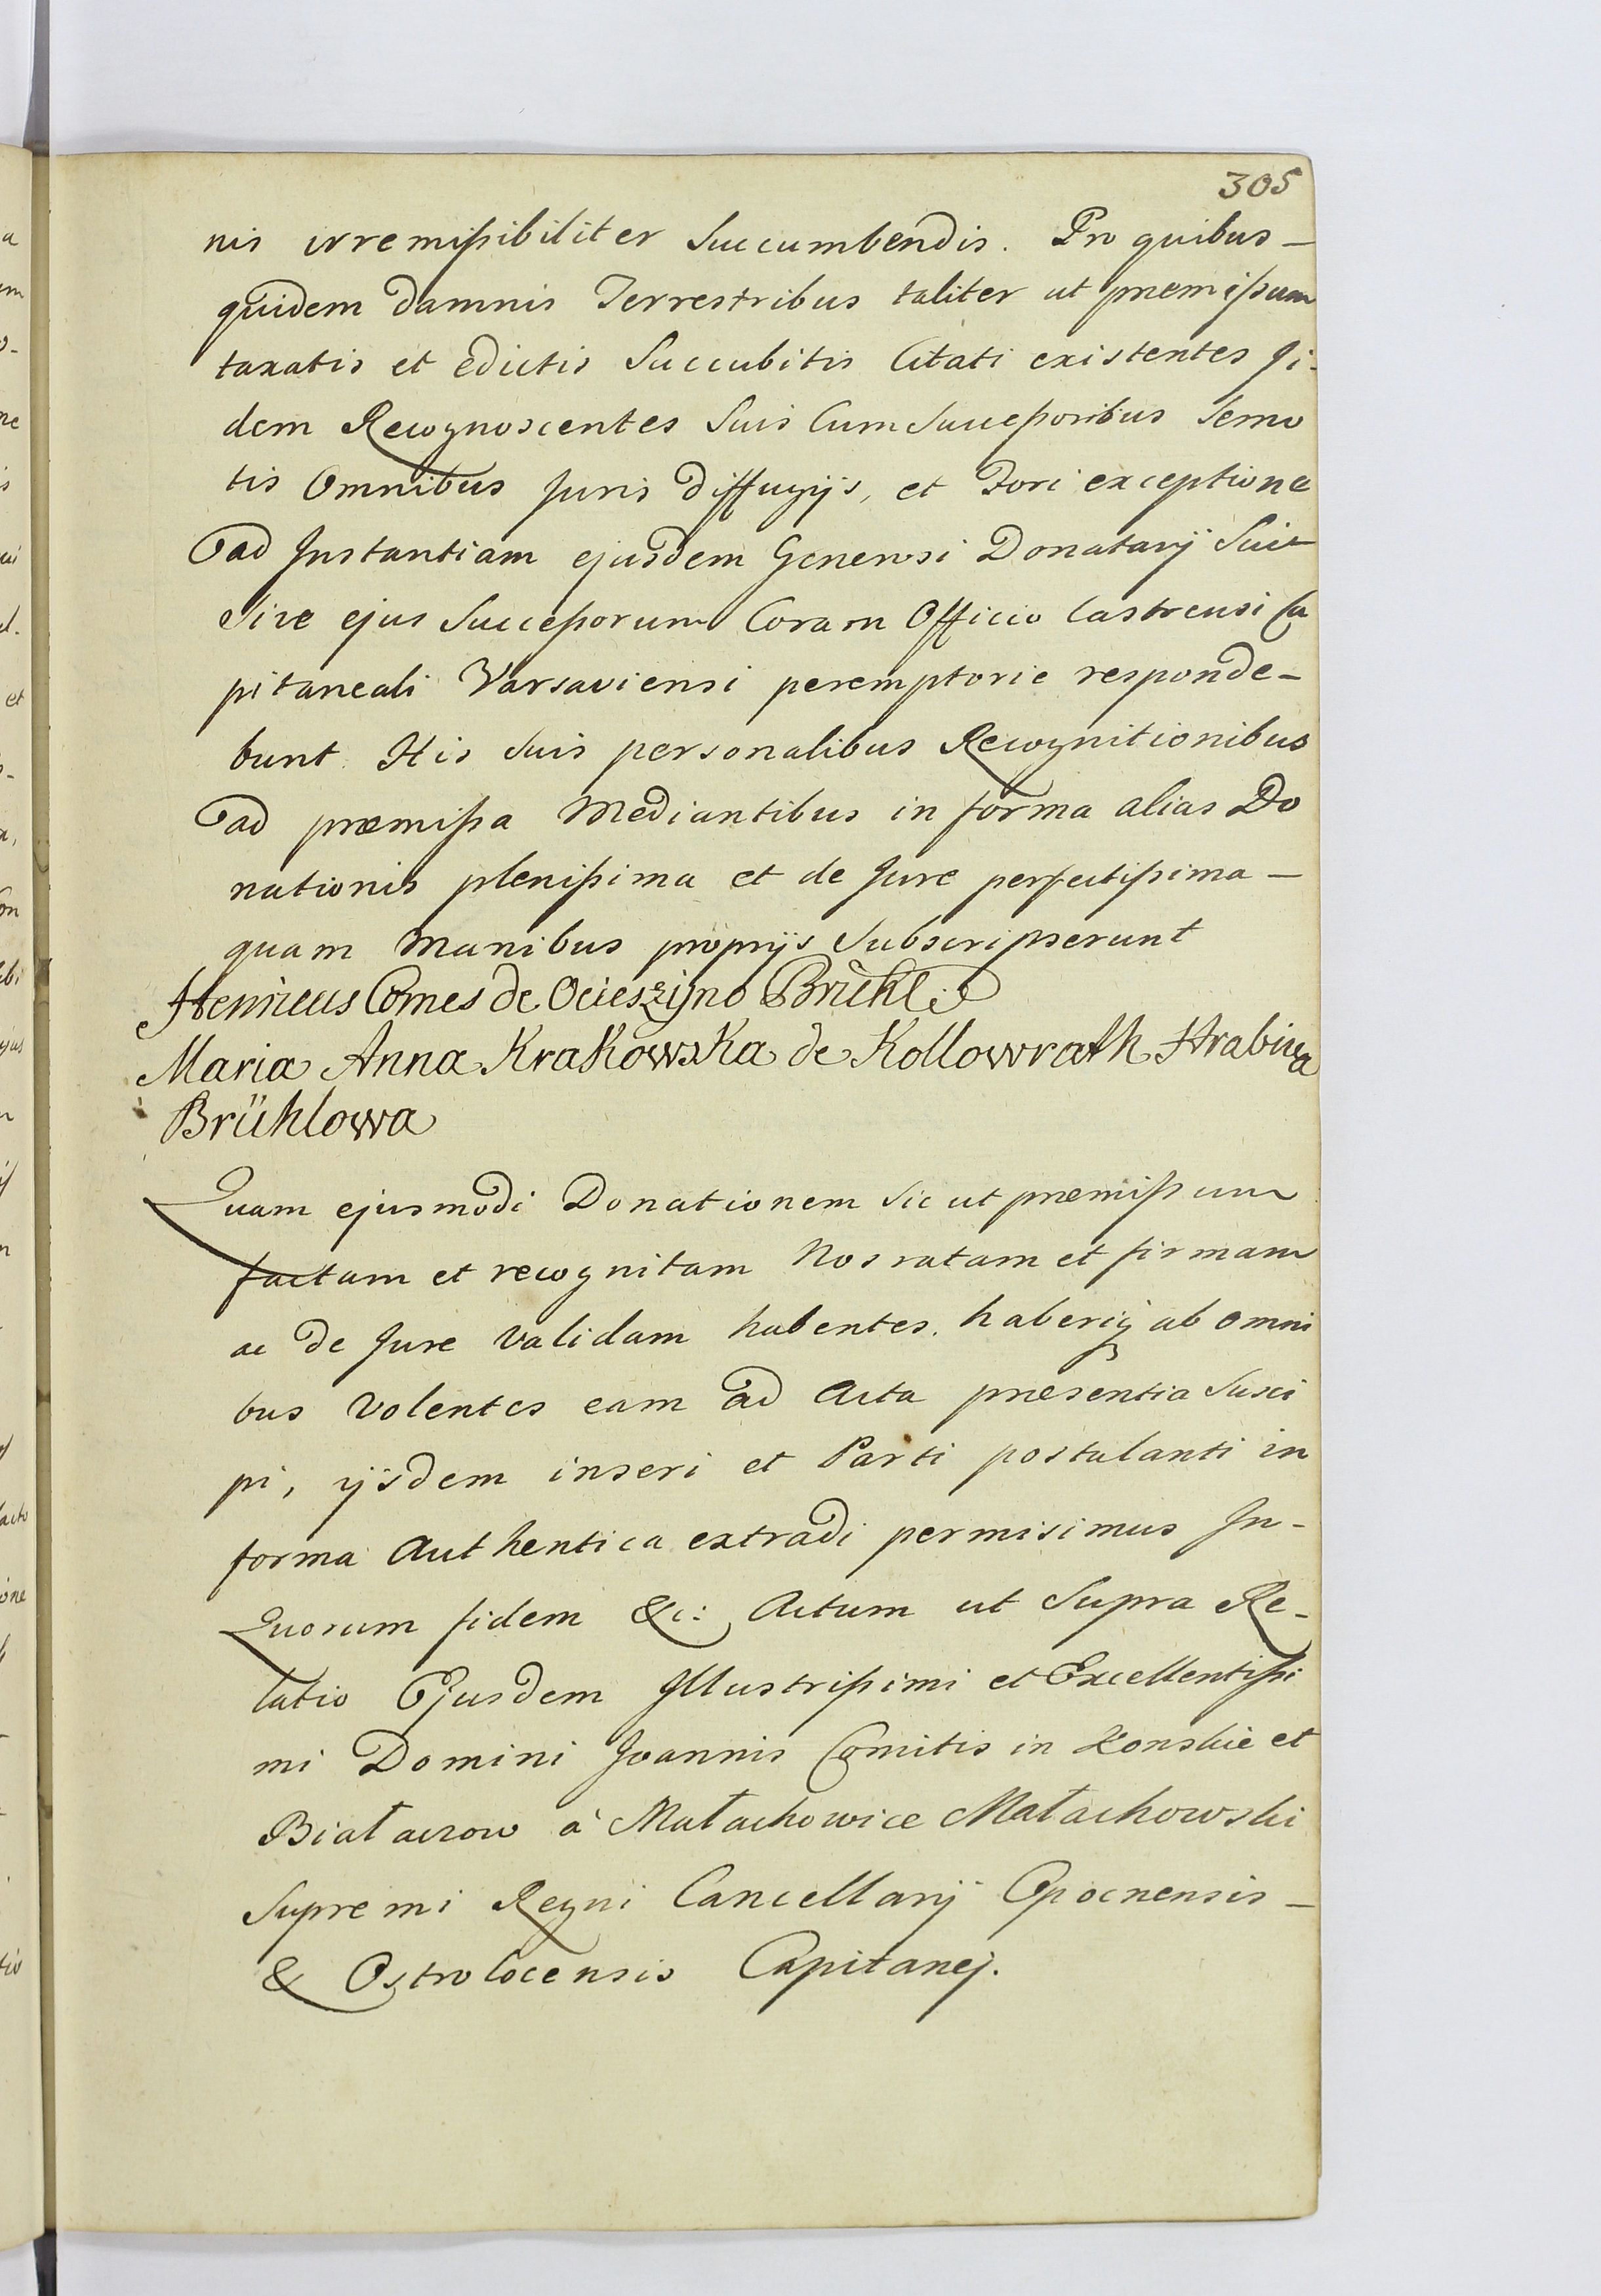 305
nis irremissibiliter Succumbendis. Pro quibus –
quidem damnis Terrestribus taliter ut præmissum
taxatis et edictis Succubitis Citati existentes Ii-
dem Recognoscentes Suis Cum Successoribus Semo
tis Omnibus Juris diffugijs, et Fori exceptione
ad Instantiam ejusdem Generosi Donatarij Sui
Sive ejus Successorum Coram Officio Castrensi Ca
pitaneali Varsaviensi peremptorie responde-
bunt. His Suis personalibus Recognitionibus
ad præmissa Mediantibus in forma alias Do
nationis plenissima et de Jure perfectissima –
quam Manibus proprijs Subscripserunt
Henricus Comes de Ocieszyno Brühl
Maria Anna Krakowska de Kollowrath Hrabina
Brühlowa
Quam ejusmodi Donationem Sic ut præmissum
factam et recognitam Nos ratam et firmam
ac de Jure Validam habentes. haberiq ab omni
bus Volentes eam ad Acta præsentia Susci
pi, ijsdem inseri et Parti postulanti in
forma Authentica extradi permisimus In-
Quorum fidem &c: Actum ut Supra Re-
latio Ejusdem Illustrissimi et Excellentissi
mi Domini Joannis Comitis in Konskie et
Białaczow à Małachowice Małachowski
Supremi Regni Cancellarij Opocnensis –
& Ostrolocensis Capitanej.